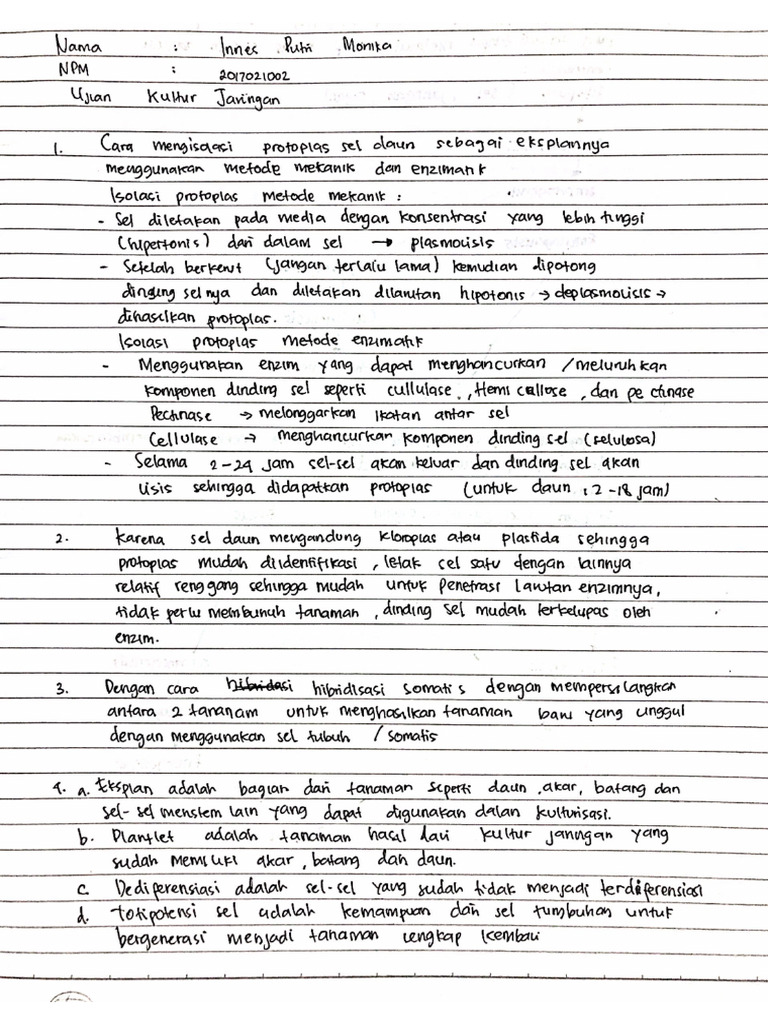 Nama : Innes Putri Monika
NPM : 2017021002
Ujian Kultur Jaringan
1. Cara mengisolasi protoplas sel daun sebagai eksplannya
menggunakan metode mekanik dan enzimatik
Isolasi protoplas metode mekanik :
- Sel diletakan pada media dengan konsentrasi yang lebih tinggi
(hipertonis) dari dalam sel → plasmolisis
- Setelah berkerut (jangan terlalu lama) kemudian dipotong
dinding selnya dan diletakan dilarutan hipotonis → deplasmolisis →
dihasilkan protoplas.
Isolasi protoplas metode enzimatik
- Menggunakan enzim yang dapat menghancurkan / meluruhkan
komponen dinding sel seperti cullulase, Hemi cellose, dan pectinase
Pectinase → melonggarkan ikatan antar sel
Cellulase → menghancurkan komponen dinding sel (selulosa)
- Selama 2-24 jam sel-sel akan keluar dan dinding sel akan
lisis sehingga didapatkan protoplas (untuk daun : 2-18 jam)
2. Karena sel daun mengandung kloroplas atau plastida sehingga
protoplas mudah diidentifikasi, letak sel satu dengan lainnya
relatif renggang sehingga mudah untuk penetrasi larutan enzimnya,
tidak perlu membunuh tanaman, dinding sel mudah terkelupas oleh
enzim.
3. Dengan cara hibridasi hibridisasi somatis dengan mempersilangkan
antara 2 tananam untuk menghasilkan tanaman baru yang unggul
dengan menggunakan sel tubuh / somatis
4. a. Eksplan adalah bagian dari tanaman seperti daun, akar, batang dan
sel-sel meristem lain yang dapat digunakan dalan kulturisasi.
b. Plantlet adalah tanaman hasil dari kultur jaringan yang
sudah memiliki akar, batang dan daun.
c. Dediferensiasi adalah sel-sel yang sudah tidak menjadi terdiferensiasi
d. Totipotensi sel adalah kemampuan dari sel tumbuhan untuk
bergenerasi menjadi tanaman lengkap kembali